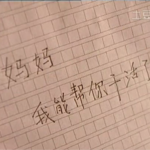 妈妈
我能帮你干活